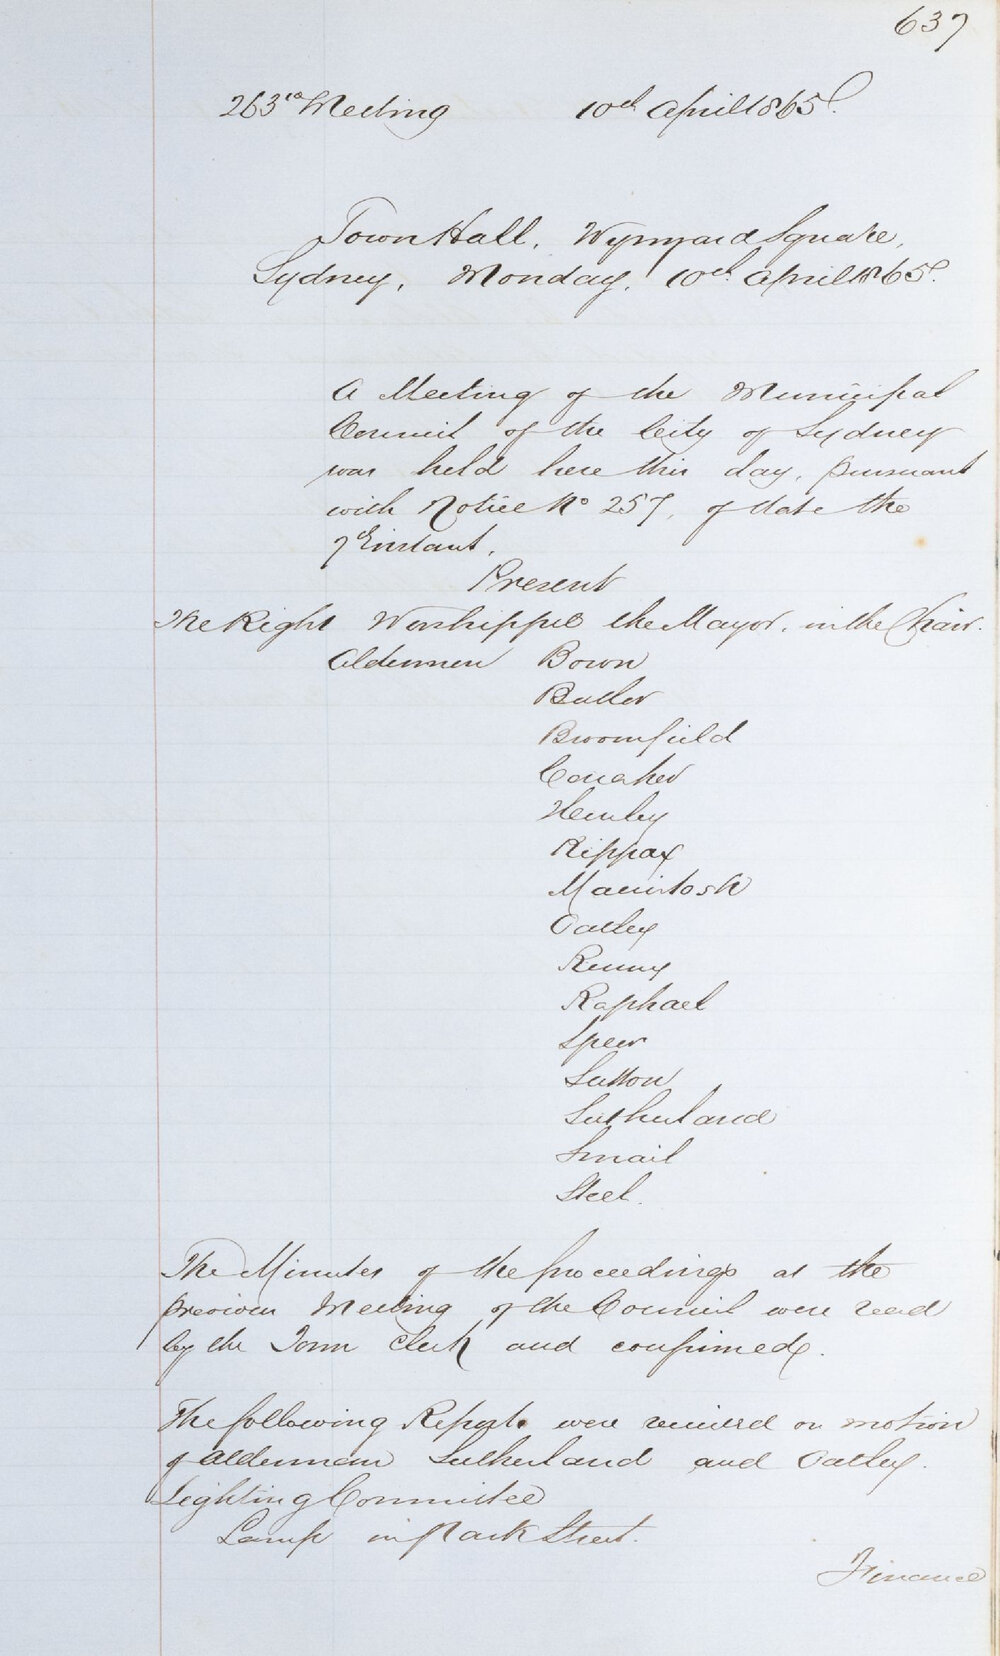 637
263rd Meeting 10th April 1865.
Town Hall, Wynyard Square,
Sydney, Monday, 10th April 1865.
A Meeting of the Municipal
Council of the City of Sydney
was held here this day, pursuant
with Notice No 257, of date the
7th instant.
Present
The Right Worshipful the Mayor, in the Chair.
Aldermen Bown
Butler
Broomfield
Conaher
Henley
Kippax
Macintosh
Oatley
Renny
Raphael
Speer
Sutton
Sutherland
Smail
Steel.
The Minutes of the proceedings at the
previous Meeting of the Council were read
by the Town Clerk and confirmed.
The following Reports were received on motion
of Aldermen Sutherland and Oatley.
Lighting Committee
Lamp in Park Street.
Finance